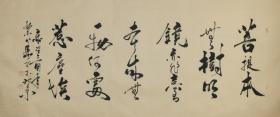 菩提本
無樹明
鏡亦非台
本來無
一物何處
惹塵埃